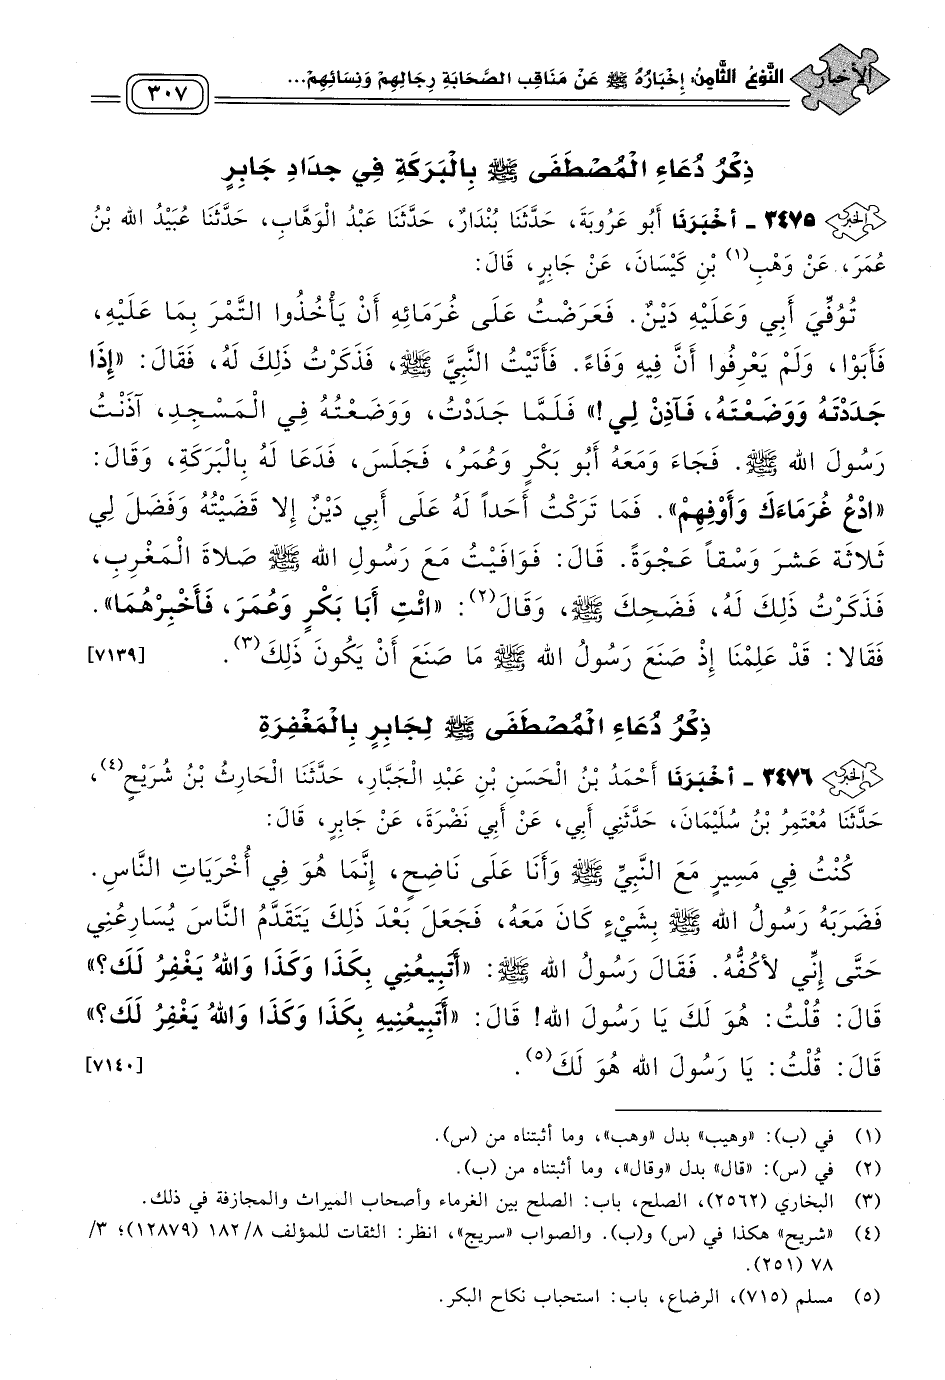 الأخبار
النَّوْعُ الثَّامِنُ: إِخْبَارُهُ ﷺ عَنْ مَنَاقِبِ الصَّحَابَةِ رِجَالِهِمْ وَنِسَائِهِمْ...
٣٠٧
ذِكْرُ دُعَاءِ الْمُصْطَفَى ﷺ بِالْبَرَكَةِ فِي جِدَادِ جَابِرٍ
٣٤٧٥ ـ أخْبَرَنَا أَبُو عَرُوبَةَ، حَدَّثَنَا بُنْدَارٌ، حَدَّثَنَا عَبْدُ الْوَهَّابِ، حَدَّثَنَا عُبَيْدُ الله بْنُ
عُمَرَ، عَنْ وَهْبِ(١) بْنِ كَيْسَانَ، عَنْ جَابِرٍ، قَالَ:
تُوُفِّيَ أَبِي وَعَلَيْهِ دَيْنٌ. فَعَرَضْتُ عَلَى غُرَمَائِهِ أَنْ يَأْخُذُوا التَّمْرَ بِمَا عَلَيْهِ،
فَأَبَوْا، وَلَمْ يَعْرِفُوا أَنَّ فِيهِ وَفَاءً. فَأَتَيْتُ النَّبِيَّ ﷺ، فَذَكَرْتُ ذَلِكَ لَهُ، فَقَالَ: «إِذَا
جَدَدْتَهُ وَوَضَعْتَهُ، فَآذِنْ لِي!» فَلَمَّا جَدَدْتُ، وَوَضَعْتُهُ فِي الْمَسْجِدِ، آذَنْتُ
رَسُولَ الله ﷺ. فَجَاءَ وَمَعَهُ أَبُو بَكْرٍ وَعُمَرُ، فَجَلَسَ، فَدَعَا لَهُ بِالْبَرَكَةِ، وَقَالَ:
«ادْعُ غُرَمَاءَكَ وَأَوْفِهِمْ». فَمَا تَرَكْتُ أَحَداً لَهُ عَلَى أَبِي دَيْنٌ إِلا قَضَيْتُهُ وَفَضَلَ لِي
ثَلاثَةَ عَشَرَ وَسْقاً عَجْوَةً. قَالَ: فَوَافَيْتُ مَعَ رَسُولِ الله ﷺ صَلاةَ الْمَغْرِبِ،
فَذَكَرْتُ ذَلِكَ لَهُ، فَضَحِكَ ﷺ، وَقَالَ(٢): «ائْتِ أَبَا بَكْرٍ وَعُمَرَ، فَأَخْبِرْهُمَا».
فَقَالا: قَدْ عَلِمْنَا إِذْ صَنَعَ رَسُولُ الله ﷺ مَا صَنَعَ أَنْ يَكُونَ ذَلِكَ(٣). [٧١٣٩]
ذِكْرُ دُعَاءِ الْمُصْطَفَى ﷺ لِجَابِرٍ بِالْمَغْفِرَةِ
٣٤٧٦ ـ أخْبَرَنَا أَحْمَدُ بْنُ الْحَسَنِ بْنِ عَبْدِ الْجَبَّارِ، حَدَّثَنَا الْحَارِثُ بْنُ شُرَيْحٍ(٤)،
حَدَّثَنَا مُعْتَمِرُ بْنُ سُلَيْمَانَ، حَدَّثَنِي أَبِي، عَنْ أَبِي نَضْرَةَ، عَنْ جَابِرٍ، قَالَ:
كُنْتُ فِي مَسِيرٍ مَعَ النَّبِيِّ ﷺ وَأَنَا عَلَى نَاضِحٍ، إِنَّمَا هُوَ فِي أُخْرَيَاتِ النَّاسِ.
فَضَرَبَهُ رَسُولُ الله ﷺ بِشَيْءٍ كَانَ مَعَهُ، فَجَعَلَ بَعْدَ ذَلِكَ يَتَقَدَّمُ النَّاسَ يُسَارِعُنِي
حَتَّى إِنِّي لأكُفُّهُ. فَقَالَ رَسُولُ الله ﷺ: «أَتَبِيعُنِي بِكَذَا وَكَذَا وَاللهُ يَغْفِرُ لَكَ؟»
قَالَ: قُلْتُ: هُوَ لَكَ يَا رَسُولَ الله! قَالَ: «أَتَبِيعُنِيهِ بِكَذَا وَكَذَا وَاللهُ يَغْفِرُ لَكَ؟»
قَالَ: قُلْتُ: يَا رَسُولَ الله هُوَ لَكَ(٥). [٧١٤٠]
(١) في (ب): «وهيب» بدل «وهب»، وما أثبتناه من (س).
(٢) في (س): «قال» بدل «وقال»، وما أثبتناه من (ب).
(٣) البخاري (٢٥٦٢)، الصلح، باب: الصلح بين الغرماء وأصحاب الميراث والمجازفة في ذلك.
(٤) «شريح» هكذا في (س) و(ب). والصواب «سريج»، انظر: الثقات للمؤلف ٨/ ١٨٢ (١٢٨٧٩)؛ ٣/
٧٨ (٢٥١).
(٥) مسلم (٧١٥)، الرضاع، باب: استحباب نكاح البكر.